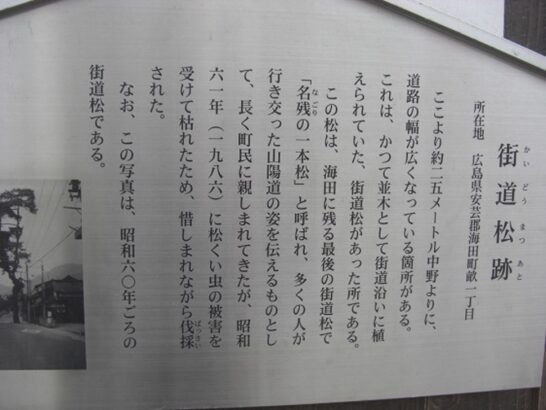 街道松跡
かいどうまつあと
所在地 広島県安芸郡海田町畝一丁目
ここより約二五メートル中野よりに、
道路の幅が広くなっている箇所がある。
これは、かつて並木として街道沿いに植
えられていた、街道松があった所である。
この松は、海田に残る最後の街道松で
「名残の一本松」と呼ばれ、多くの人が
なごり
行き交った山陽道の姿を伝えるものとし
て、長く町民に親しまれてきたが、昭和
六一年(一九八六)に松くい虫の被害を
受けて枯れたため、惜しまれながら伐採
ばっさい
された。
なお、この写真は、昭和六〇年ごろの
街道松である。